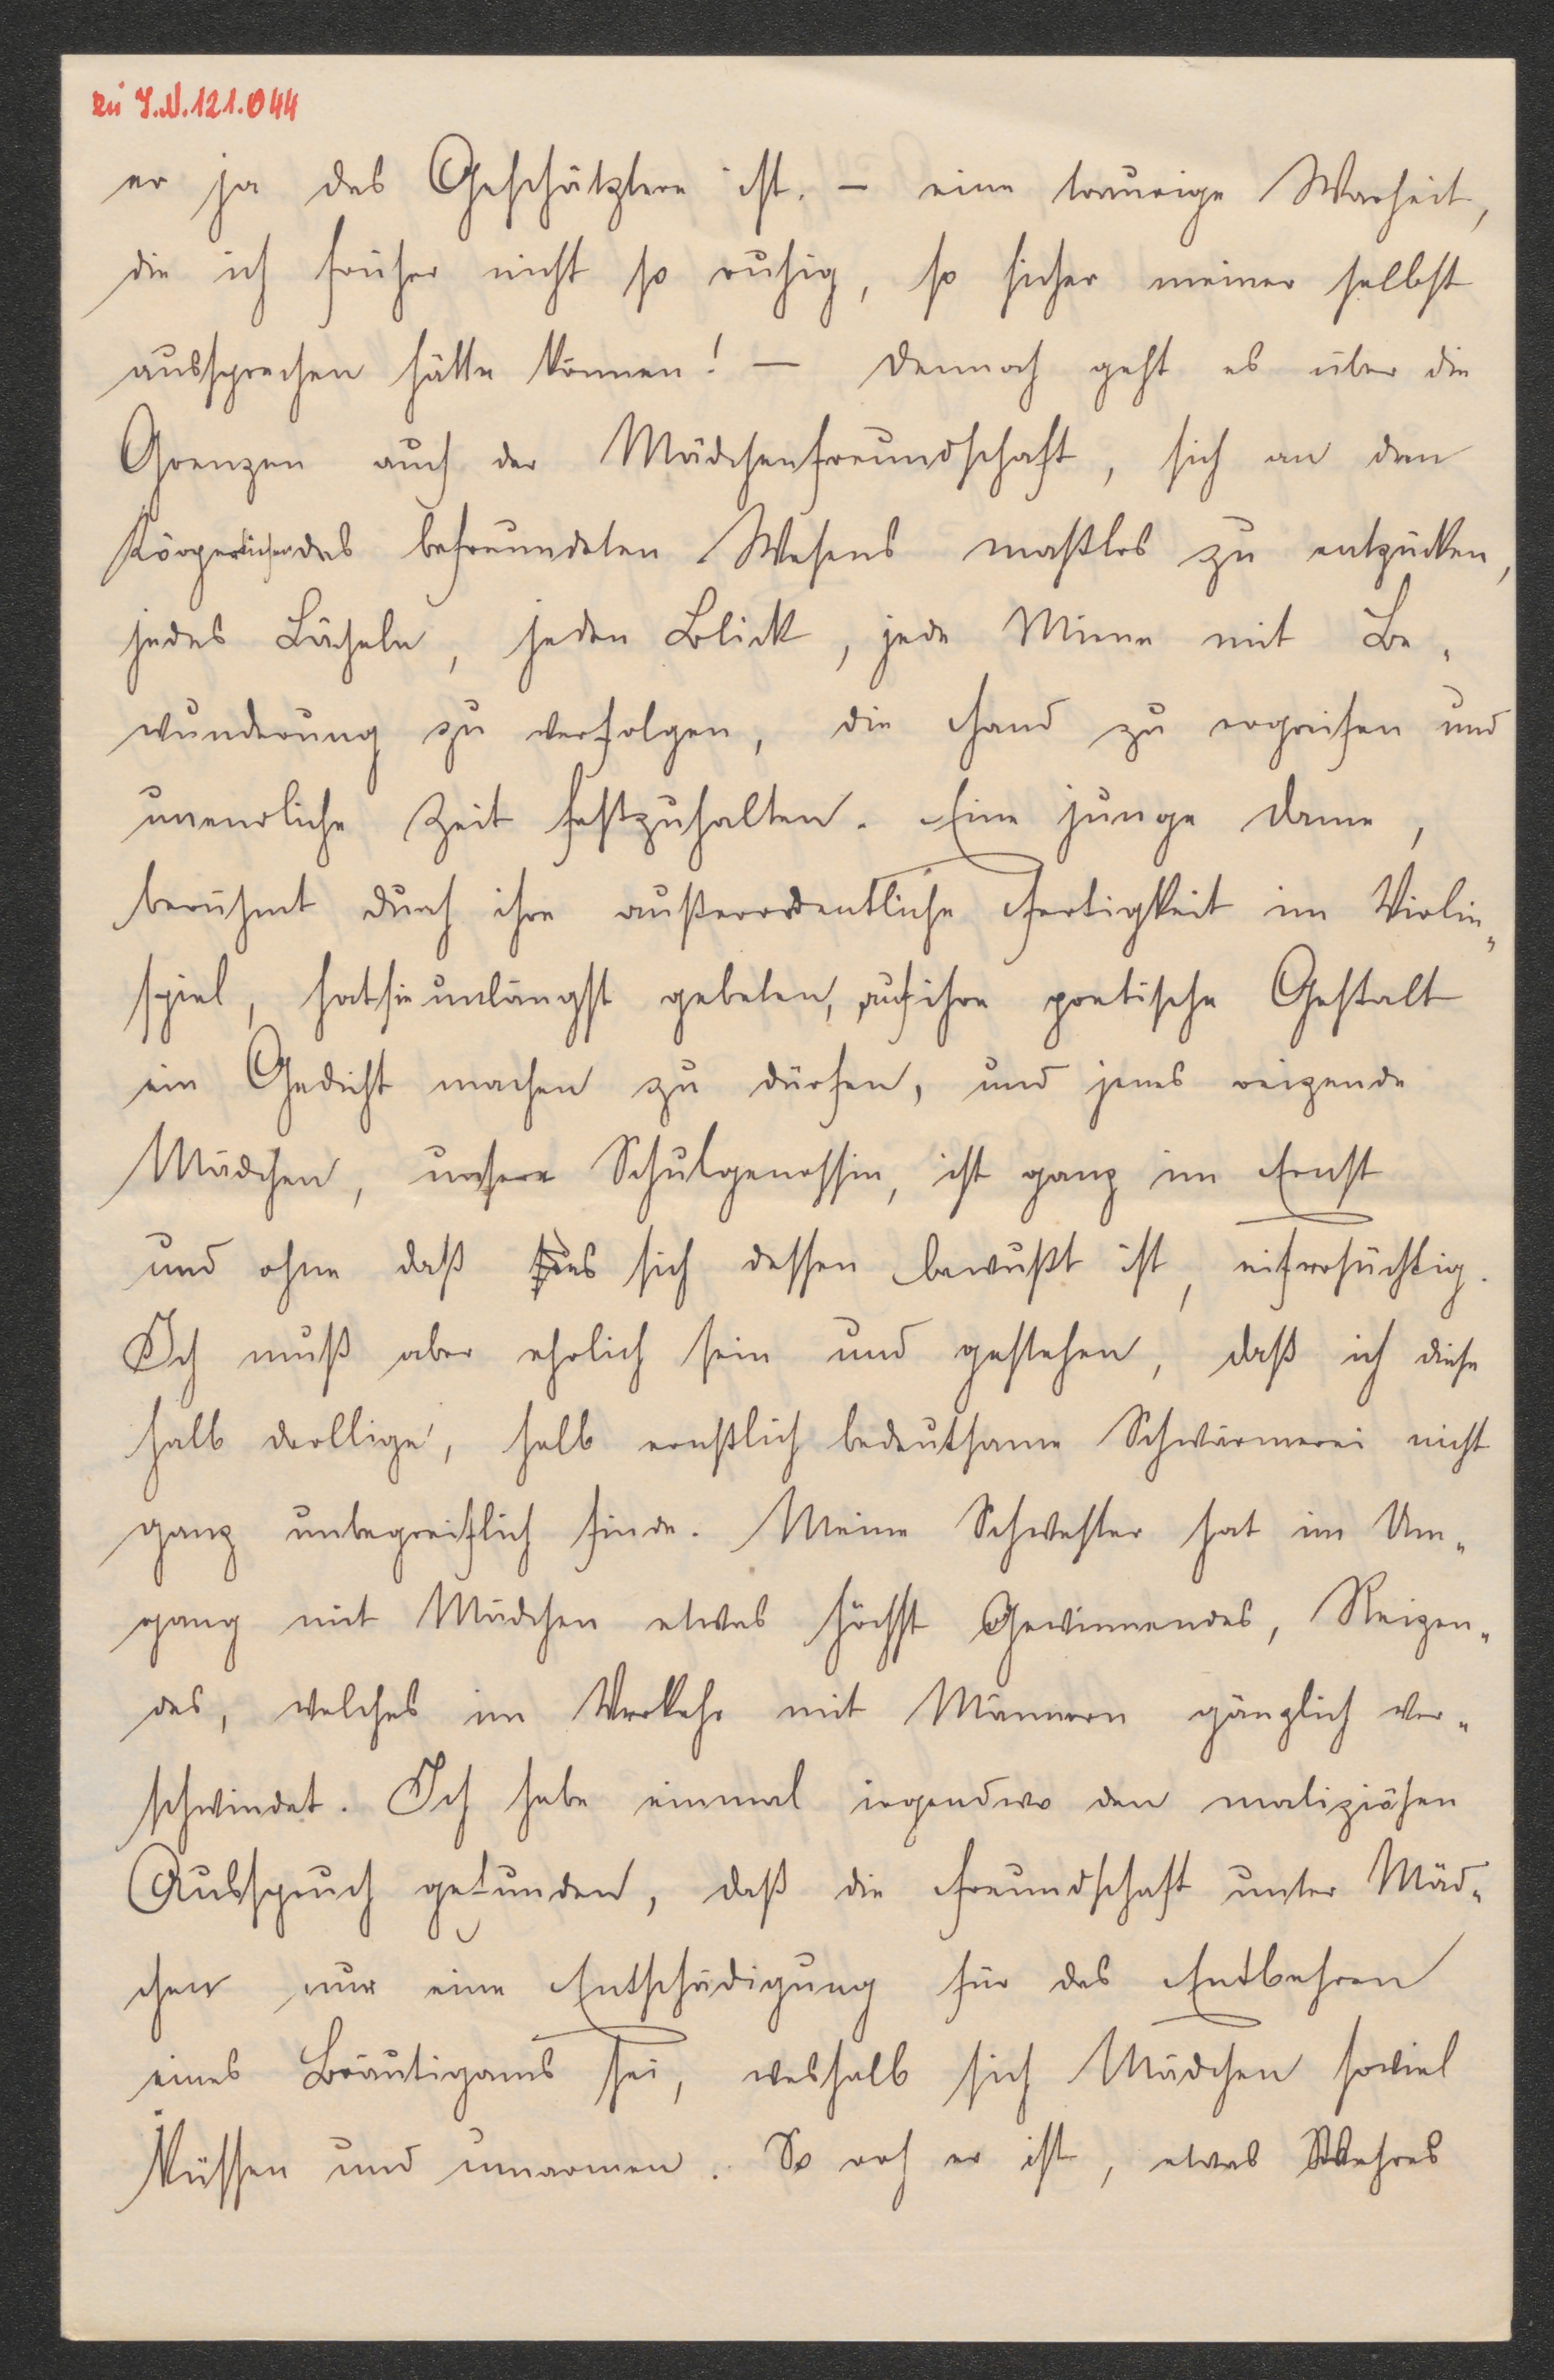 zu I.N. 121.044
er ja das Geschätztere ist. – eine traurige Warheit,
die ich früher nicht so ruhig, so sicher meiner selbst
aussprechen hätte können! – Dennoch geht es über die
Grenzen auch der Mädchenfreundschaft, sich an dem
Körperlichen des befreundeten Wesens maßlos zu entzücken,
jedes Lächeln, jeden Blick, jede Miene mit Be„
wunderung zu verfolgen, die Hand zu ergreifen und
unendliche Zeit festzuhalten. Eine junge Dame,
berühmt durch ihre außerordentliche Fertigkeit im Violin„
spiel, hat sie unlängst gebeten, auf ihre poetische Gestalt
ein Gedicht machen zu dürfen, und jenes reizende
Mädchen, unsere Schulgenossin, ist ganz im Ernst
und ohne daß es sich dessen bewußt ist, eifersüchtig.
Ich muß aber ehrlich sein und gestehen, daß ich diese
halb drollige, halb ernstlich bedeutsame Schwärmerei nicht
ganz unbegreiflich finde. Meine Schwester hat im Um„
gang mit Mädchen etwas höchst Gewinnendes, Reizen„
des, welches im Verkehr mit Männern gänzlich ver„
schwindet. Ich habe einmal irgendwo den maliziösen
Ausspruch gefunden, daß die Freundschaft unter Mäd„
chen nur eine Entschädigung für das Entbehren
eines Bräutigams sei, weshalb sich Mädchen soviel
küssen und umarmen. So roh er ist, etwas Wahres